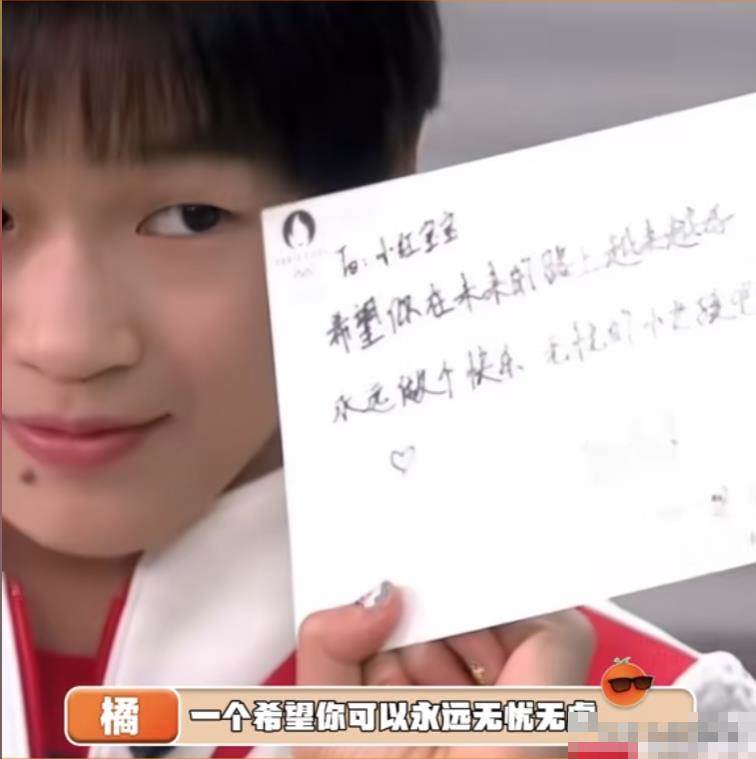 To: 小红宝宝
希望你在未来的路上越来越好
永远做个快乐 无忧的小
橘
一个希望你可以永远无忧无虑